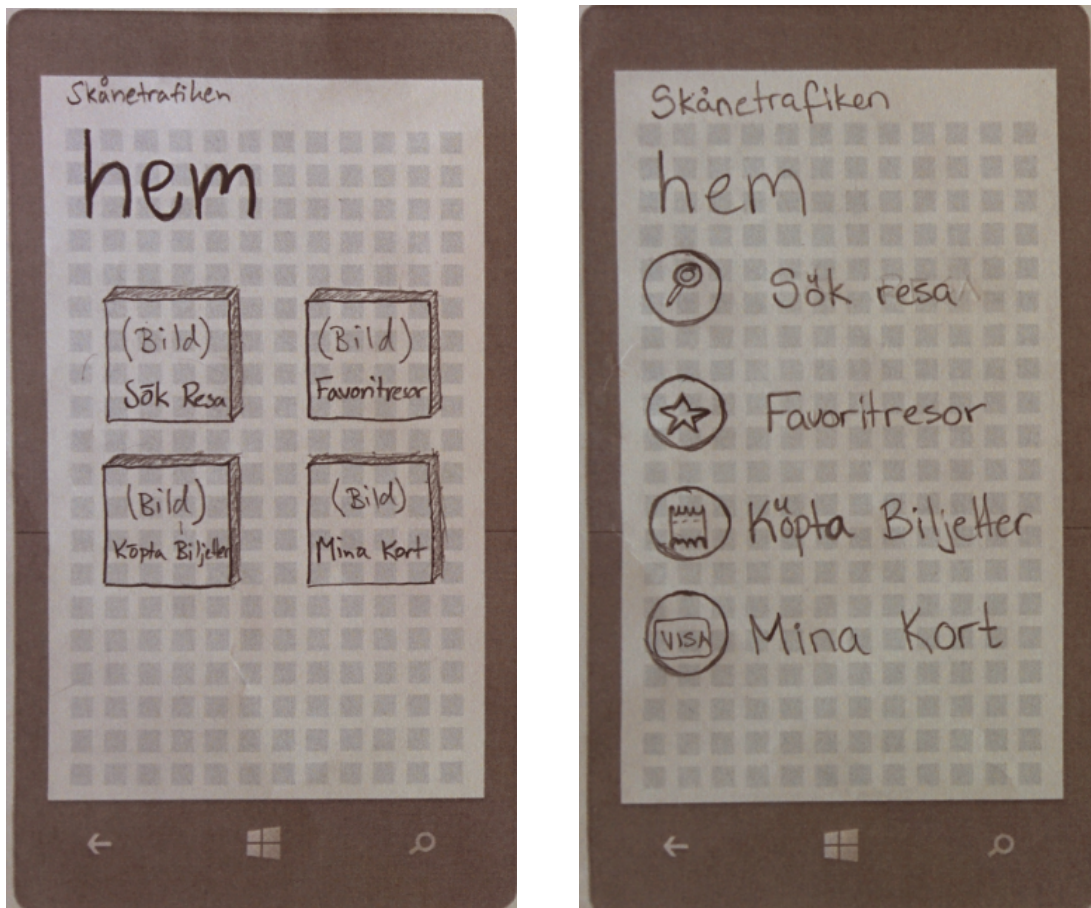 Skånetrafiken
hem
(Bild)
Sök Resa
(Bild)
Favoritresor
(Bild)
Köpta Biljetter
(Bild)
Mina Kort
Skånetrafiken
hem
Sök resa
Favoritresor
Köpta Biljetter
VISA
Mina Kort